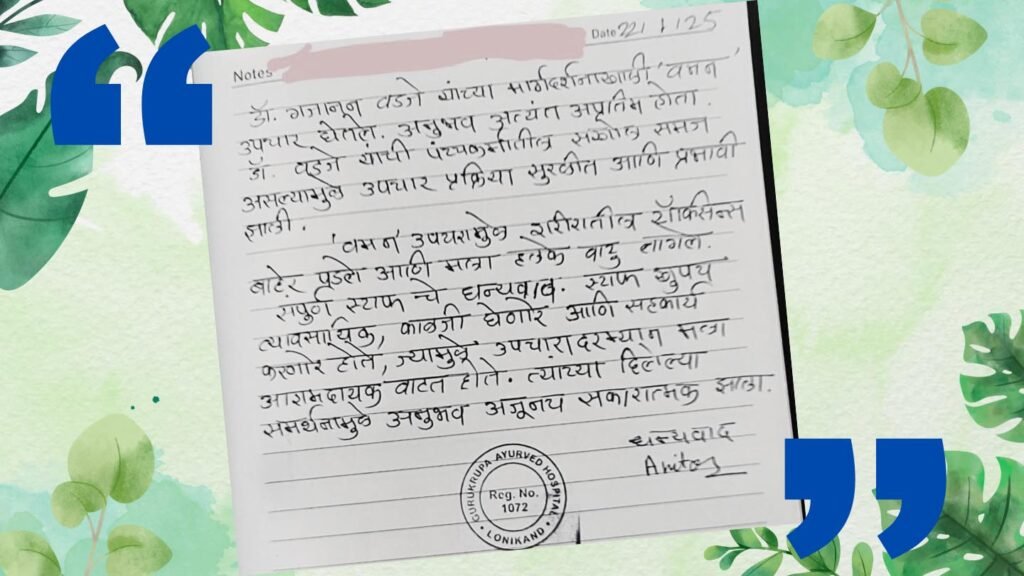 Notes
Date 22/1/25
डॉ. गजानन वडजे यांच्या मार्गदर्शनाखाली 'वमन'
उपचार घेतला. अनुभव अत्यंत अप्रतिम होता.
डॉ. वडजे यांची पंचकर्मातील सखोल समज
असल्यामुळे उपचार प्रक्रिया सुरळीत आणि प्रभावी
झाली.
'वमन' उपचारामुळे शरीरातील टॉक्सिन्स
बाहेर पडले आणि मला हलके वाटु लागले.
संपुर्ण स्टाफ चे धन्यवाद. स्टाफ खुपच
व्यावसायिक, काळजी घेणारे आणि सहकार्य
करणारे होते, ज्यामुळे उपचारादरम्यान मला
आरामदायक वाटत होते. त्यांच्या दिलेल्या
समर्थनामुळे अनुभव अजूनच सकारात्मक झाला.
धन्यवाद
GURUKRUPA AYURVED HOSPITAL
Reg. No.
1072
LONIKAND